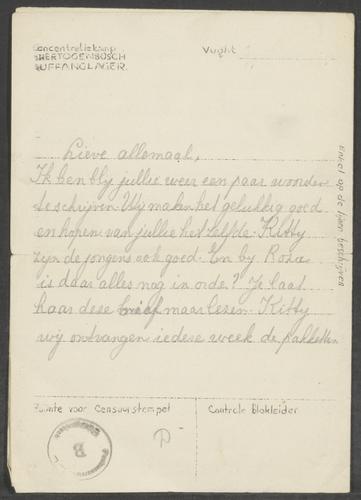 Concentratiekamp
s'HERTOGENBOSCH
AUFFANGLAGER.
Vught
Enkel op de lijnen beschrijven
Lieve allemaal,
Ik ben bly jullie weer een paar woorden
te schrijven. Wij maken het gelukkig goed
en hopen van jullie het zelfde. Kitty
zyn de jongens ook goed. En by Rosa
is daar alles nog in orde? Je laat
haar dese brief maar lezen. Kitty
wij ontvangen iedere week de pakketten
Ruimte voor Censuurstempel
Controle Blokleider
B